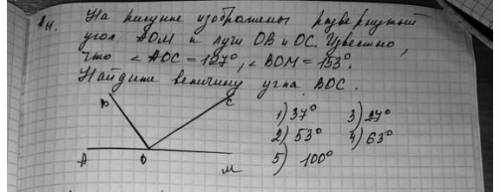 А4. На рисунке изображены развернутый
угол АОМ и лучи ОВ и ОС. Известно,
что ∠ АОС = 127°, ∠ ВОМ = 153°.
Найдите величину угла ВОС.
В С
1) 37° 3) 27°
2) 53° 4) 63°
А О М
5) 100°